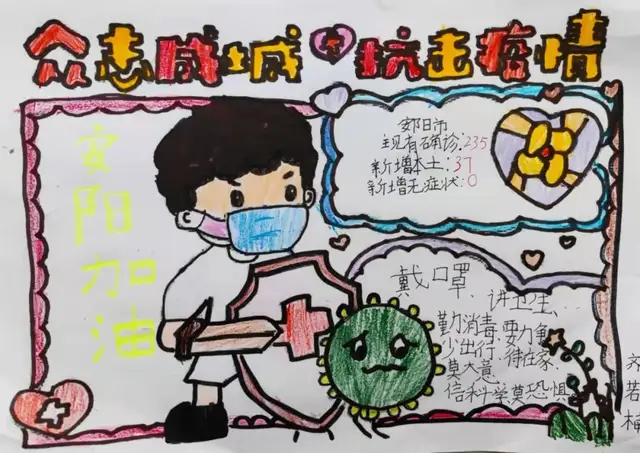 众志成城 抗击疫情
安阳加油
安阳市
现有确诊:235
新增本土:37
新增无症状:0
戴口罩、讲卫生、
勤消毒
少出行 待在家、
莫大意
信科学莫恐惧
齐
若